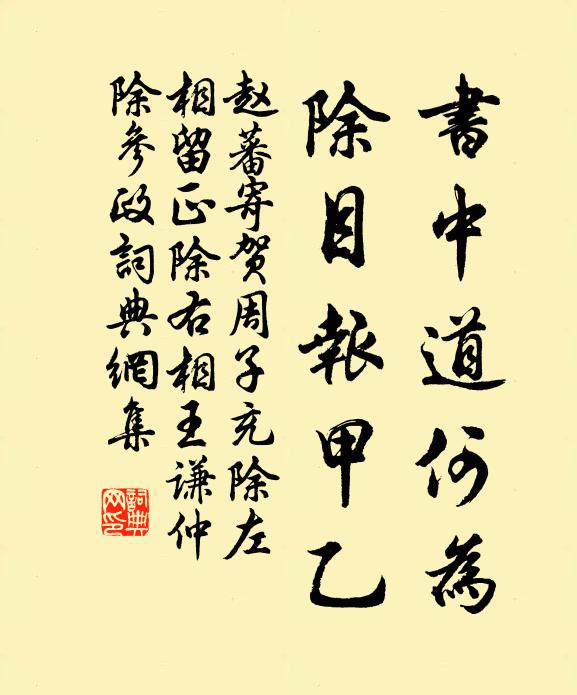 書中道何為
除目報甲乙
赵蕃寄贺周子充除左
相留正除右相王谦仲
除參政詞典網集
詞典网印